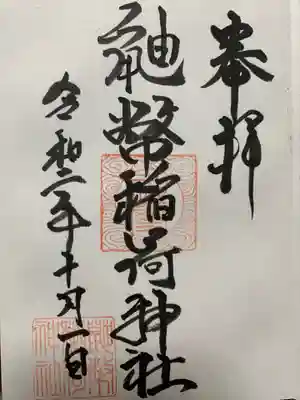 奉拝
鼬幣稲荷神社
令和二年十月一日